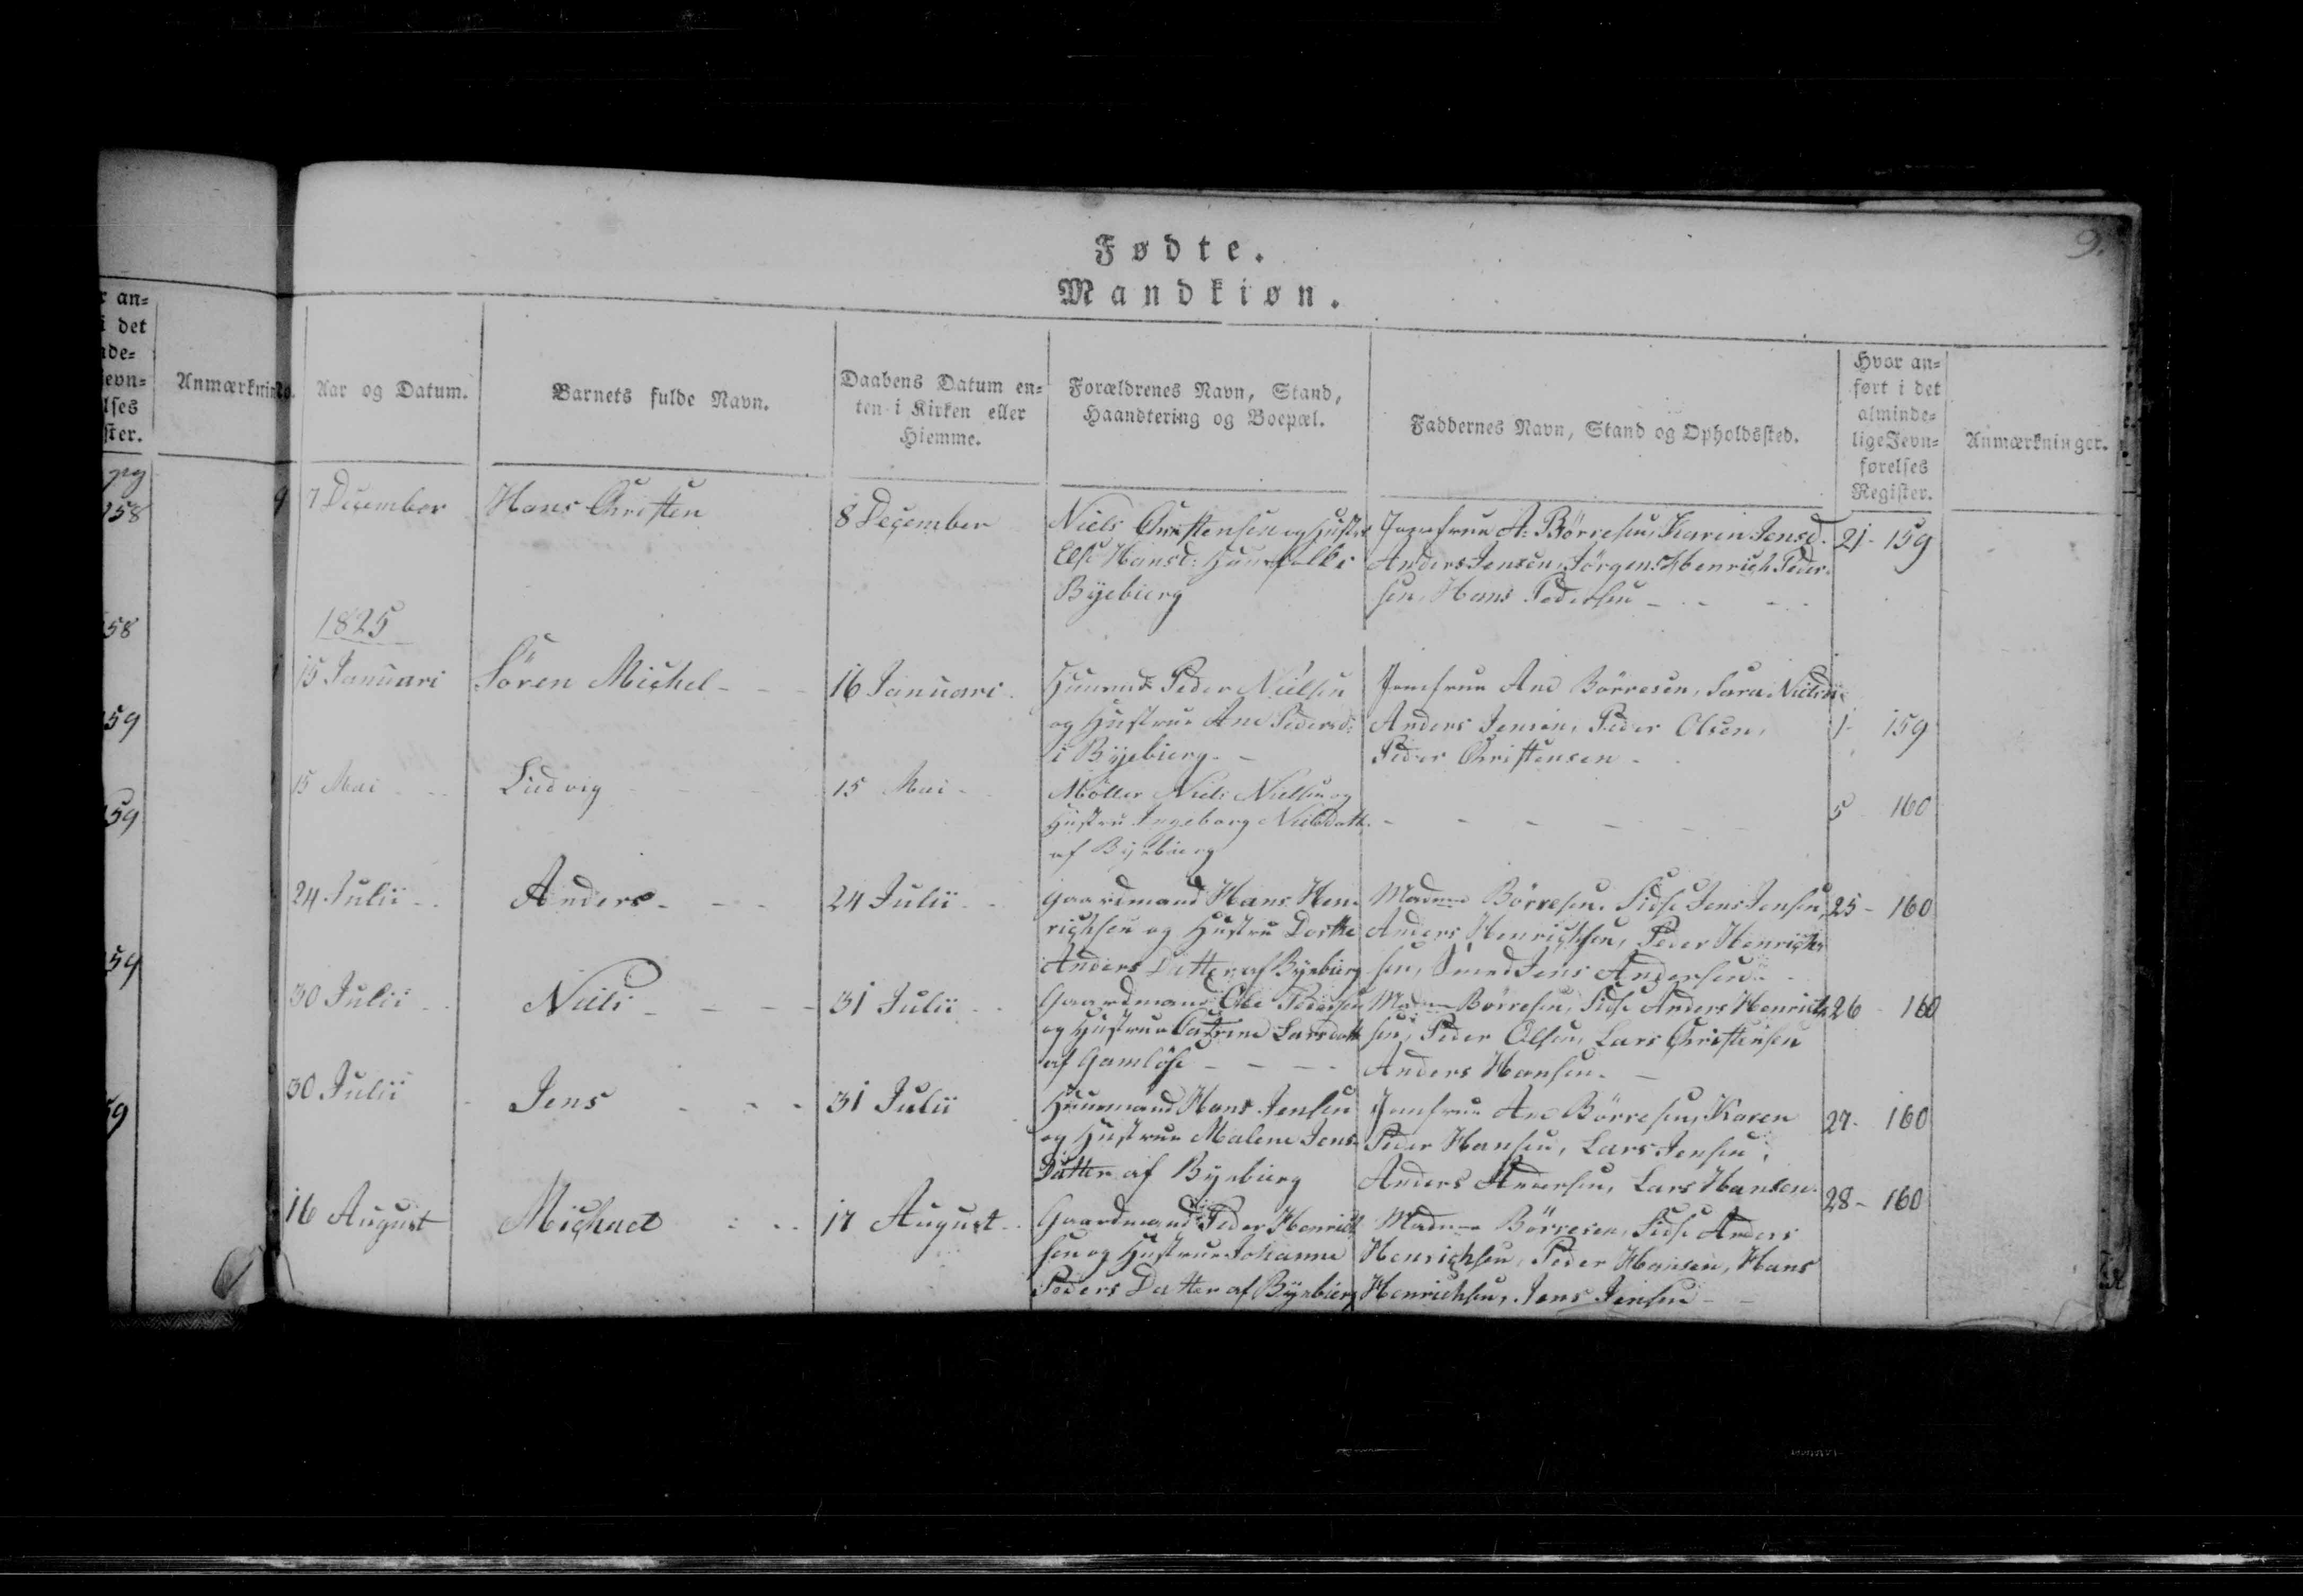 r an=
i det
nde=
Jevn=
lses
ster.
Anmærknin
pag
158
58
159
159
59
59
9.
Fødte.
Mandkiøn.
No.
Aar og Datum.
Barnets fulde Navn.
Daabens Datum en=
ten i Kirken eller
Hiemme.
Forældrenes Navn, Stand,
Haandtering og Boepæl.
Faddernes Navn, Stand og Opholdssted.
Hvor an=
ført i det
alminde=
lige Jevn=
førelses
Register.
Anmærkninger.
9
7 December
Hans Christen
8 December
Niels Christensen og Hustr.
Else Hansd: Huusfolk i
Byebierg
Jomfrue A: Börresen, Karen Jensd.
Anders Jensen, Jörgen Henrich Peder-
sen, Hans Pedersen - - - -
21 - 159
1825
1
15 Januari
Sören Michel - - -
16 Januari -
Huusmd: Peder Nielsen
og Hustrue Ane Pedersd:
i Byebierg. -
Jomfrue Ane Börresen, Sara Nielsd:
Anders Jensen, Peder Olsen,
Peder Christensen -
1 - 159
15 Mai - - -
Ludvig - - -
15 Mai - -
Möller Niels Nielsen og
Hustru Ingeborg Nielsdatt.
af Byebierg
- - - - - -
5 160
24 Julii - -
Anders - - -
24 Julii - -
Gaardmand Hans Hen-
richsen og Hustru Dorthe
Anders Datter af Byebierg
Madme Börresen, Sidse Jens Jensen,
Anders Henrichsen, Peder Henrich-
sen, Smed Jens Andersen - -
25 - 160
30 Julii - -
Niels - - - -
31 Julii - -
Gaardmand Ole Pedersen
og Hustrue Catrine Larsdatt
af Gamlöse - - - -
Madme Börresen, Sidse Anders Henrich-
sen, Peder Olsen, Lars Christensen
Anders Hansen. -
26 - 160
30 Julii -
Jens - - -
31 Julii -
Huusmand Hans Jensen
og Hustrue Malene Jens-
Datter af Byebierg
Jomfrue Ane Börresen, Karen
Peder Hansen, Lars Jensen,
Anders Andersen, Lars Hansen.
27 - 160
16 August
Michael - - -
17 August -
Gaardmand Peder Henrich-
sen og Hustrue Johanne
Peders Datter af Byebierg
Madme Börresen, Sidse Anders
Henrichsen, Peder Hansen, Hans
Henrichsen, Jens Jensen - -
28 - 160